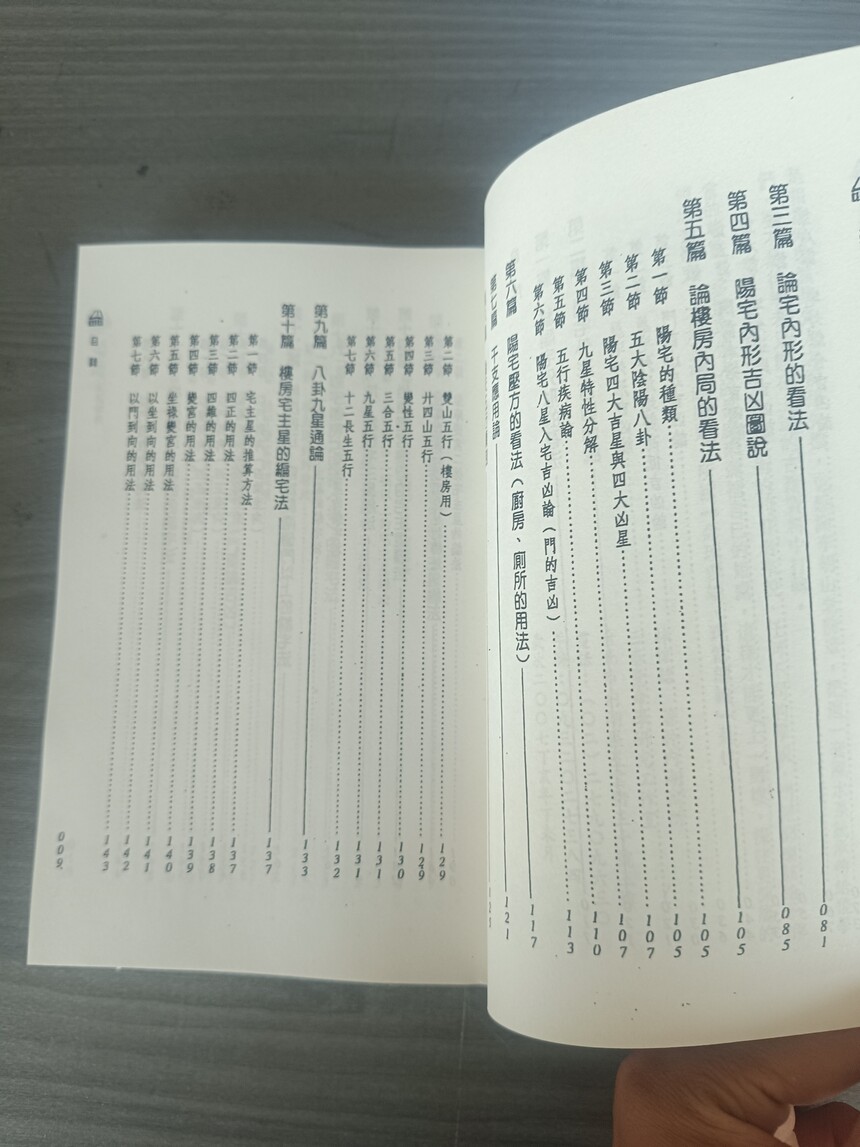 第三篇 論宅內形的看法 081
第四篇 陽宅內形吉凶圖說 085
第五篇 論樓房內局的看法 105
第一節 陽宅的種類 105
第二節 五大陰陽八卦 105
第三節 陽宅四大吉星與四大凶星 107
第四節 九星特性分解 107
第五節 五行疾病論 110
第六節 陽宅八星入宅吉凶論（門的吉凶） 113
第六篇 陽宅壓方的看法（廚房、廁所的用法） 117
第七篇 干支應用論 121
第二節 雙山五行（樓房用） 129
第三節 廿四山五行 129
第四節 變性五行 130
第五節 三合五行 131
第六節 九星五行 131
第七節 十二長生五行 132
第九篇 八卦九星通論 133
第十篇 樓房宅主星的縮宅法 137
第一節 宅主星的推算方法 137
第二節 四正的用法 138
第三節 四離的用法 139
第四節 變宮的用法 140
第五節 坐祿變宮的用法 141
第六節 以坐到向的用法 142
第七節 以門到向的用法 143
目錄
009